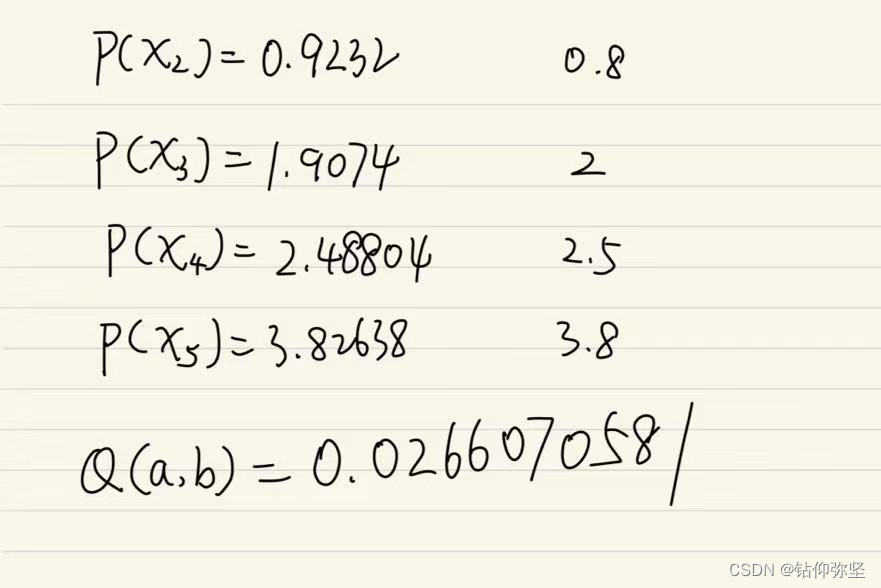 P(x₂) = 0.9232 0.8
P(x₃) = 1.9074 2
P(x₄) = 2.48804 2.5
P(x₅) = 3.82638 3.8
Q(a,b) = 0.026607058/
CSDN @钻仰弥坚